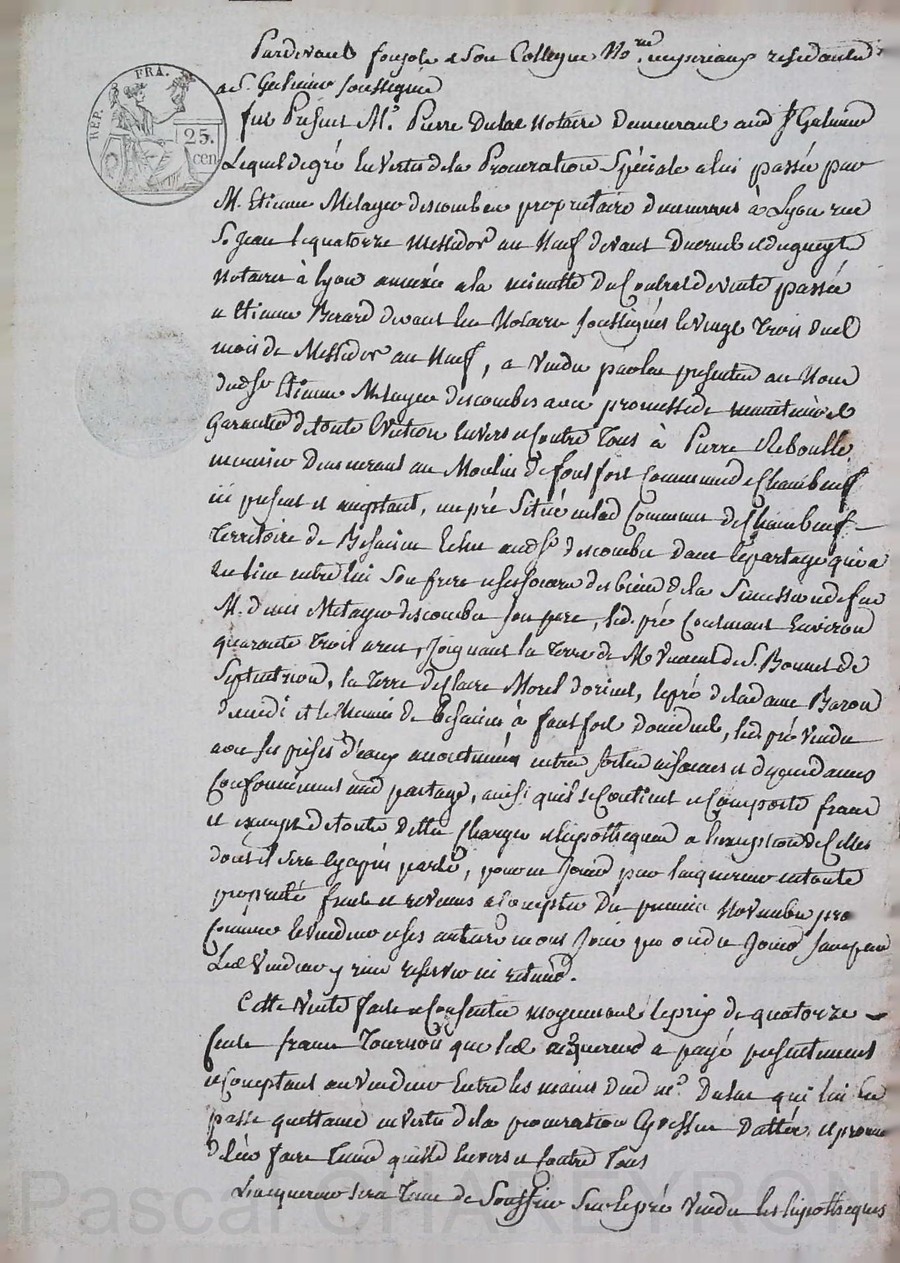 REP. FRA.
25. cen
Pardevant fonjols & son Collegue No.res imperiaux residants
a St. Galmier soussignés
fut Present Me. Pierre Dulac Notaire Demeurant aud St Galmier
Lequel de gré En Vertu de la Procuration Spéciale a lui passée par
M. Etienne Metayer descombes propriétaire demeurant à Lyon rue
St. Jean le quatorze Messidor an Neuf devant
notaire à Lyon annexée a la minutte Du Contrat de vente passée
a Etienne Berard devant les Notaires soussignés le vingt trois dud
mois de Messidor an Neuf, a vendu par les presentes au Nom
dud Sr Etienne Metayer descombes avec promesse de maintenir et
Garantir de toute Eviction Envers et Contre Tous à Pierre Reboulle
meunier demeurant au Moulin de fontfort Commune de Chambeuf
ici present et acceptant, un pré Situé en lad Commune de Chambeuf
Territoire de Echu aud Sr descombes dans le partage qui a
Eu lieu entre lui Son frere & ses soeurs des biens de la Succession de feu
M. denis Metayer descombes son pere, led. pré Contenant Environ
quarante trois ares, Joignant la Terre de M Vincent de St. Bonnet de
Septentrion, la terre de Claire Morel d'orient, le pré de la dame Baron
de midi et le Chemin de à fontfort d'occident, led. pré vendu
avec ses prises d'eaux accoutumées entrées sorties aisances et dependances
Conformément aud partage, ainsi qu'il se Contient & Comporte franc
et exempt de toutes dettes Charges & hipotheques a l'exception de Celles
dont il sera cyaprès parlé, pour en Jouir par l'acquereur en toute
propriété fruits et revenus a Compter Du premier Novembre pro
Comme le vendeur & ses auteurs en ont Joui pu ou du Jouir sans par
Led Vendeur y rien reserver ni retenir.
Cette Vente faite & Consentie moyennant le prix de quatorze
Cents francs Tournois que led acquereur a payé presentement
et Comptant au Vendeur Entre les mains dud me. Dulac qui lui En
passe quittance en vertu de la procuration Cydessus Dattée, et promet
de l'en faire Tenir quitte Envers et Contre Tous
L'acquereur sera Tenu de Souffrir Sur le pré vendu les hipotheques
Pascal CHAREYRON